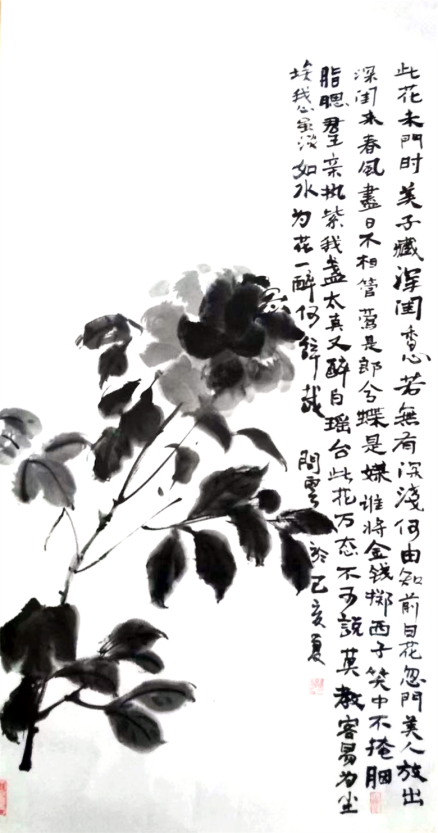 此花未門时美子藏深闺香心若無有深淺何由知前日花忽門美人放出
深闺来春風盡日不相管鶯是郎兮蝶是媒谁将金钱掷西子笑中不掩胭
脂腮君王亲执紫我盏太真又醉白瑶台此花万态不可說莫教容易为尘
埃我心虽淡如水为花一醉何辞哉 閒雲 於己亥夏